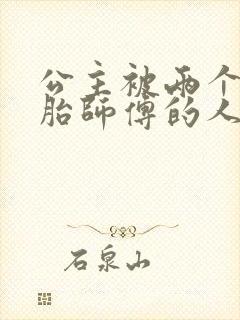 公主被两个
胎師傅的人
石泉山